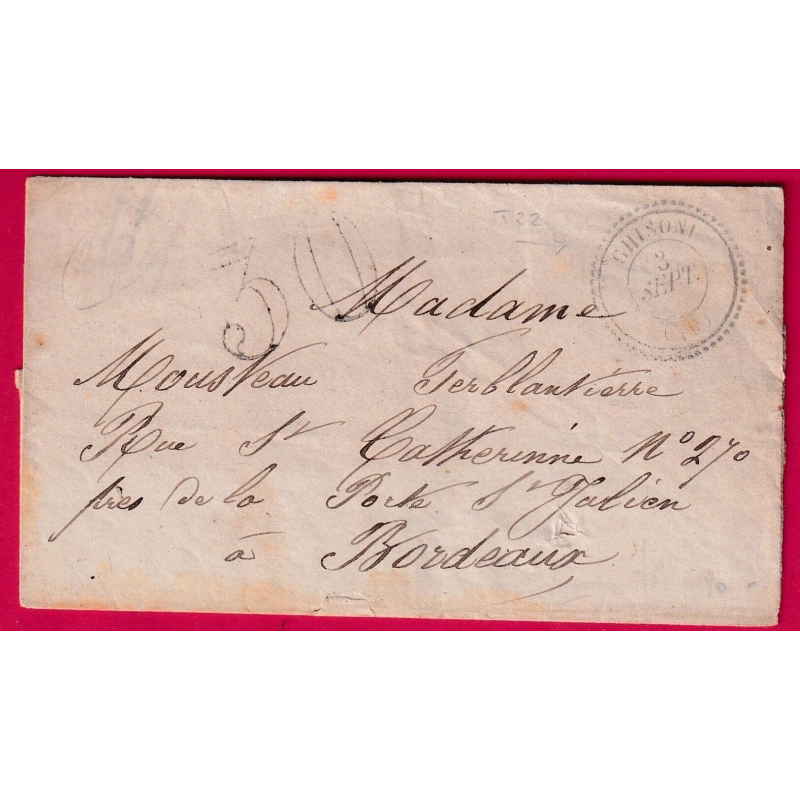 T 22
GHISONI
3
SEPT.
30
Madame
Mousteau Ferblantière
Rue St Catherinne N° 270
pres de la Porte St Julien
à Bordeaux